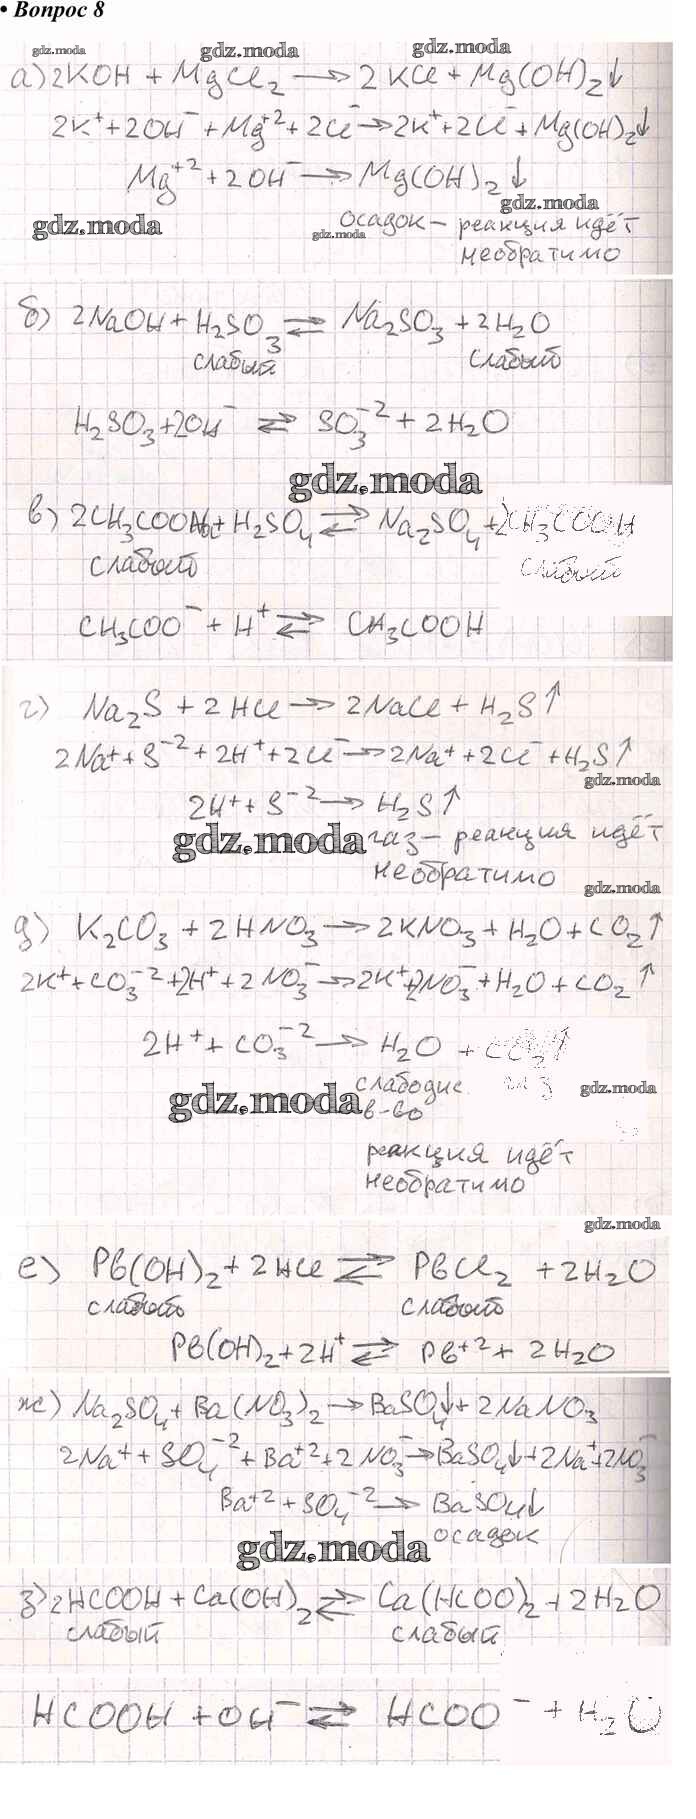 • Вопрос 8
gdz.moda gdz.moda gdz.moda
а) 2KOH + MgCl₂ → 2KCl + Mg(OH)₂↓
2K⁺ + 2OH⁻ + Mg⁺² + 2Cl⁻ → 2K⁺ + 2Cl⁻ + Mg(OH)₂↓
Mg⁺² + 2OH⁻ → Mg(OH)₂↓
gdz.moda
gdz.moda gdz.moda осадок – реакция идёт
необратимо
б) 2NaOH + H₂SO₃ ⇄ Na₂SO₃ + 2H₂O
слабый слабый
H₂SO₃ + 2OH⁻ ⇄ SO₃⁻² + 2H₂O
gdz.moda
в) 2CH₃COONa + H₂SO₄ ⇄ Na₂SO₄ + 2CH₃COOH
слабый слабый
CH₃COO⁻ + H⁺ ⇄ CH₃COOH
г) Na₂S + 2HCl → 2NaCl + H₂S↑
2Na⁺ + S⁻² + 2H⁺ + 2Cl⁻ → 2Na⁺ + 2Cl⁻ + H₂S↑
gdz.moda
2H⁺ + S⁻² → H₂S↑
gdz.moda газ – реакция идёт
необратимо
gdz.moda
д) K₂CO₃ + 2HNO₃ → 2KNO₃ + H₂O + CO₂↑
2K⁺ + CO₃⁻² + 2H⁺ + 2NO₃⁻ → 2K⁺ + 2NO₃⁻ + H₂O + CO₂↑
2H⁺ + CO₃⁻² → H₂O + CO₂↑
gdz.moda слабодис. газ gdz.moda
в-во
реакция идёт
необратимо
gdz.moda
е) Pb(OH)₂ + 2HCl ⇄ PbCl₂ + 2H₂O
слабый слабый
Pb(OH)₂ + 2H⁺ ⇄ Pb⁺² + 2H₂O
ж) Na₂SO₄ + Ba(NO₃)₂ → BaSO₄↓ + 2NaNO₃
2Na⁺ + SO₄⁻² + Ba⁺² + 2NO₃⁻ → BaSO₄↓ + 2Na⁺ + 2NO₃⁻
Ba⁺² + SO₄⁻² → BaSO₄↓
осадок
gdz.moda
з) 2HCOOH + Ca(OH)₂ ⇄ Ca(HCOO)₂ + 2H₂O
слабый слабый
HCOOH + OH⁻ ⇄ HCOO⁻ + H₂O